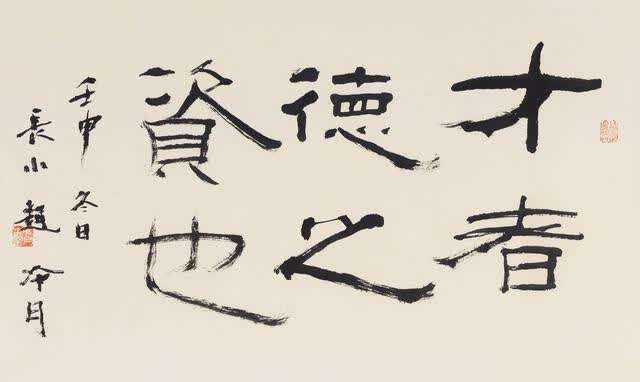 才者
德之
資也
壬申冬日
長水趙冷月